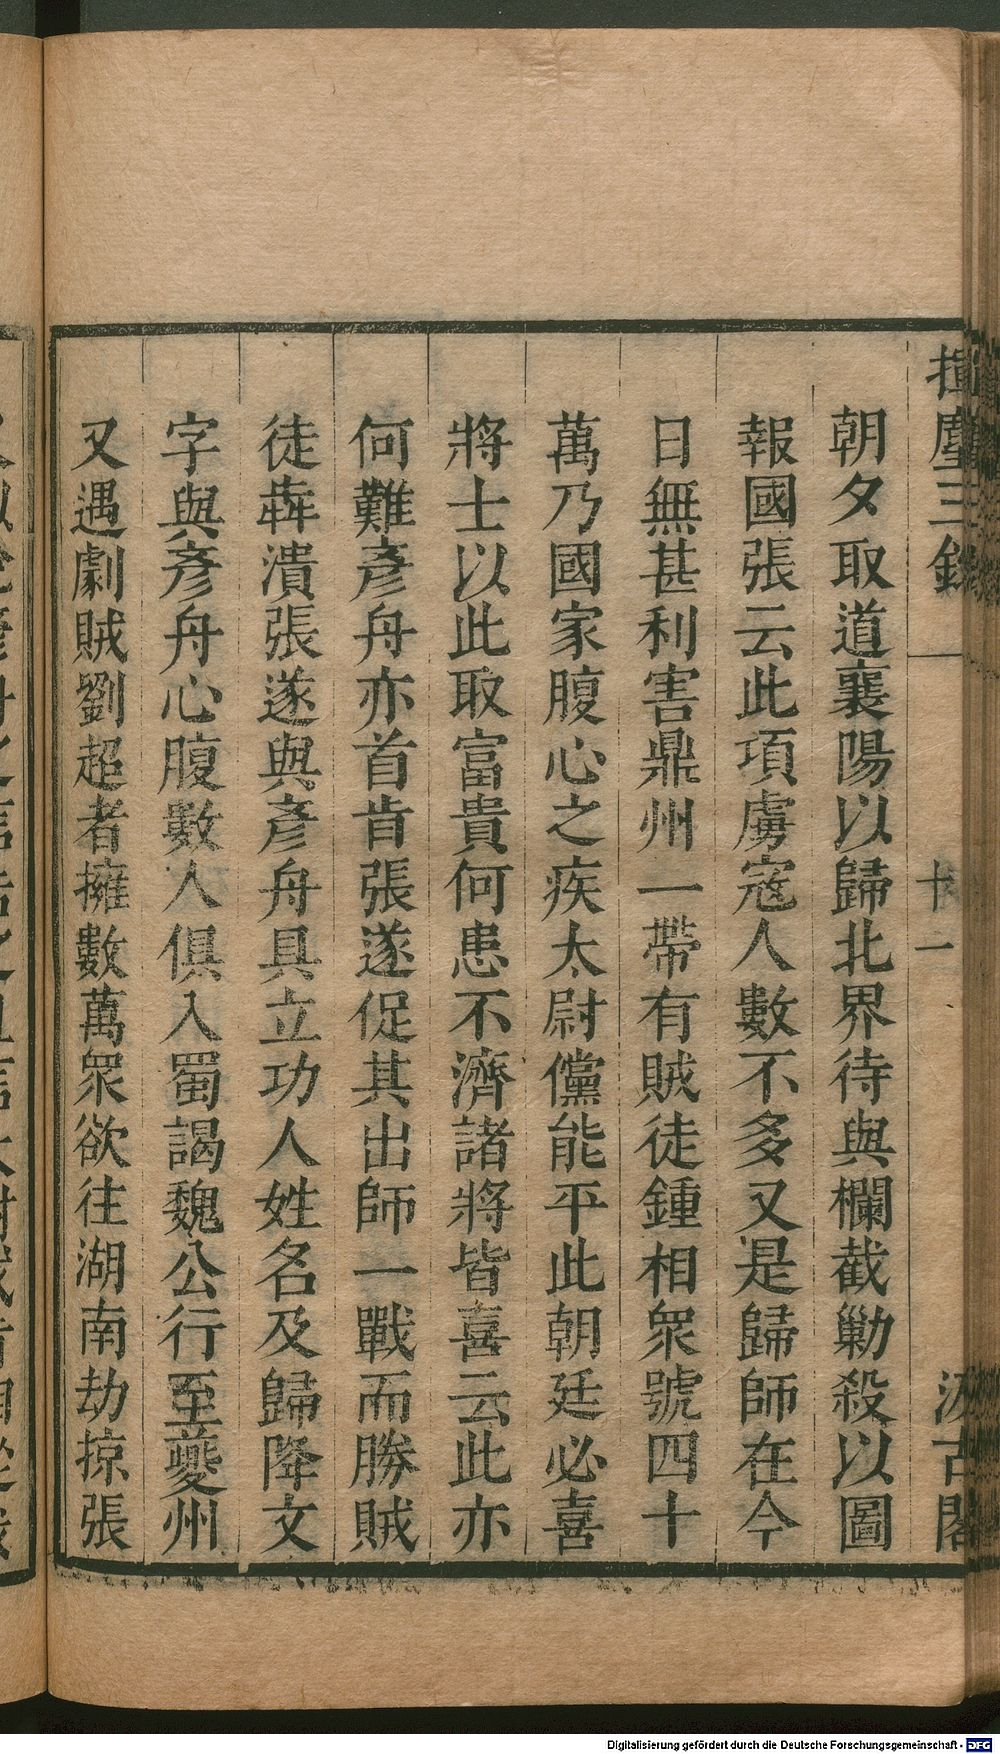 揮麈三錄
十一
汲古閣
朝夕取道襄陽以歸北界待與欄截勦殺以圖
報國張云此項虜寇人數不多又是歸師在今
日無甚利害鼎州一帶有賊徒鍾相衆號四十
萬乃國家腹心之疾太尉儻能平此朝廷必喜
將士以此取富貴何患不濟諸將皆喜云此亦
何難彥舟亦首肯張遂促其出師一戰而勝賊
徒犇潰張遂與彥舟具立功人姓名及歸降文
字與彥舟心腹數人俱入蜀謁魏公行至夔州
又遇劇賊劉超者擁數萬衆欲往湖南劫掠張
Digitalisierung gefördert durch die Deutsche Forschungsgemeinschaft - DFG